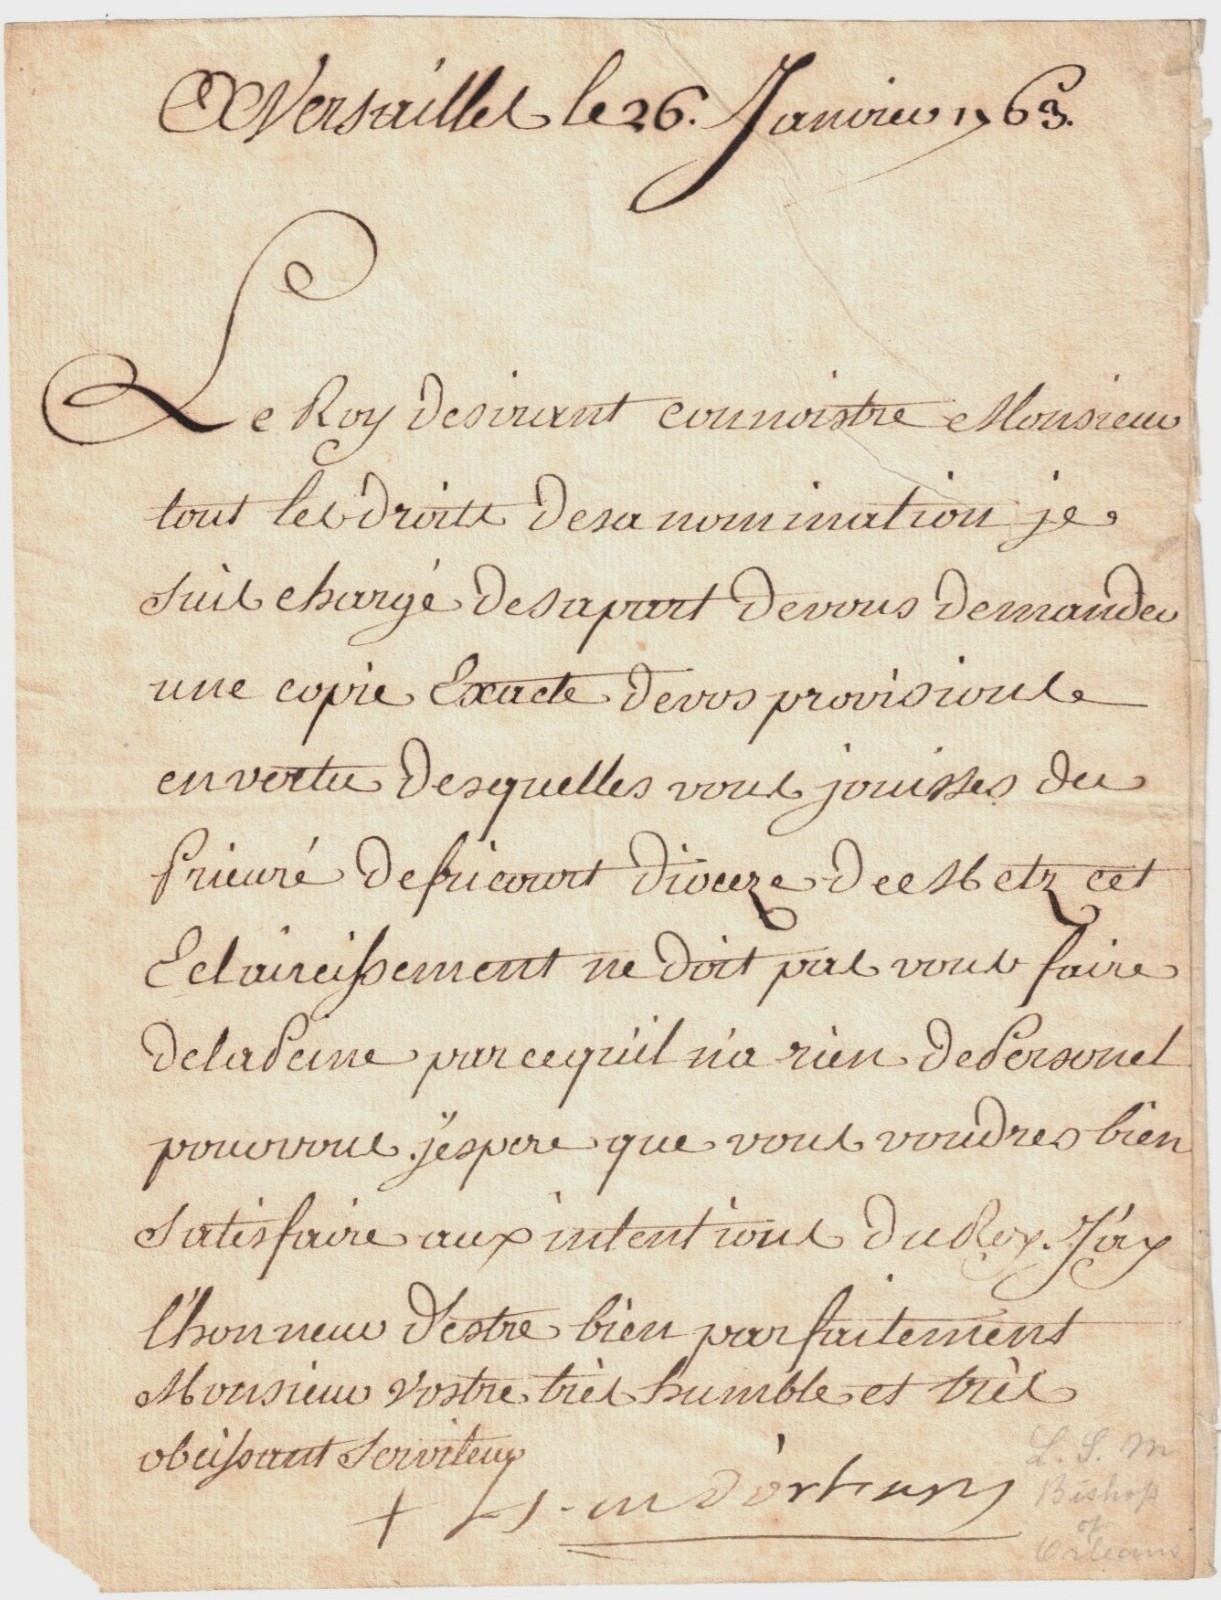 A Versailles le 26. Janvier 1763.
Le Roy desirant connoistre Monsieur
tout les droits de sa nomination je
suis chargé de sa part de vous demander
une copie Exacte de vos provisions
en vertu desquelles vous jouisses du
Prieuré de fricourt dioceze de Metz cet
Eclaircissement ne doit pas vous faire
de la Peine parce qu'il n'a rien de Personel
pour vous. j'espere que vous voudres bien
satisfaire aux intentions du Roy. J'ay
l'honneur d'estre bien parfaitement
Monsieur vostre très humble et très
obeissant serviteur
+ L. S. ev d'orleans
L. S. M
Bishop
of
Orleans